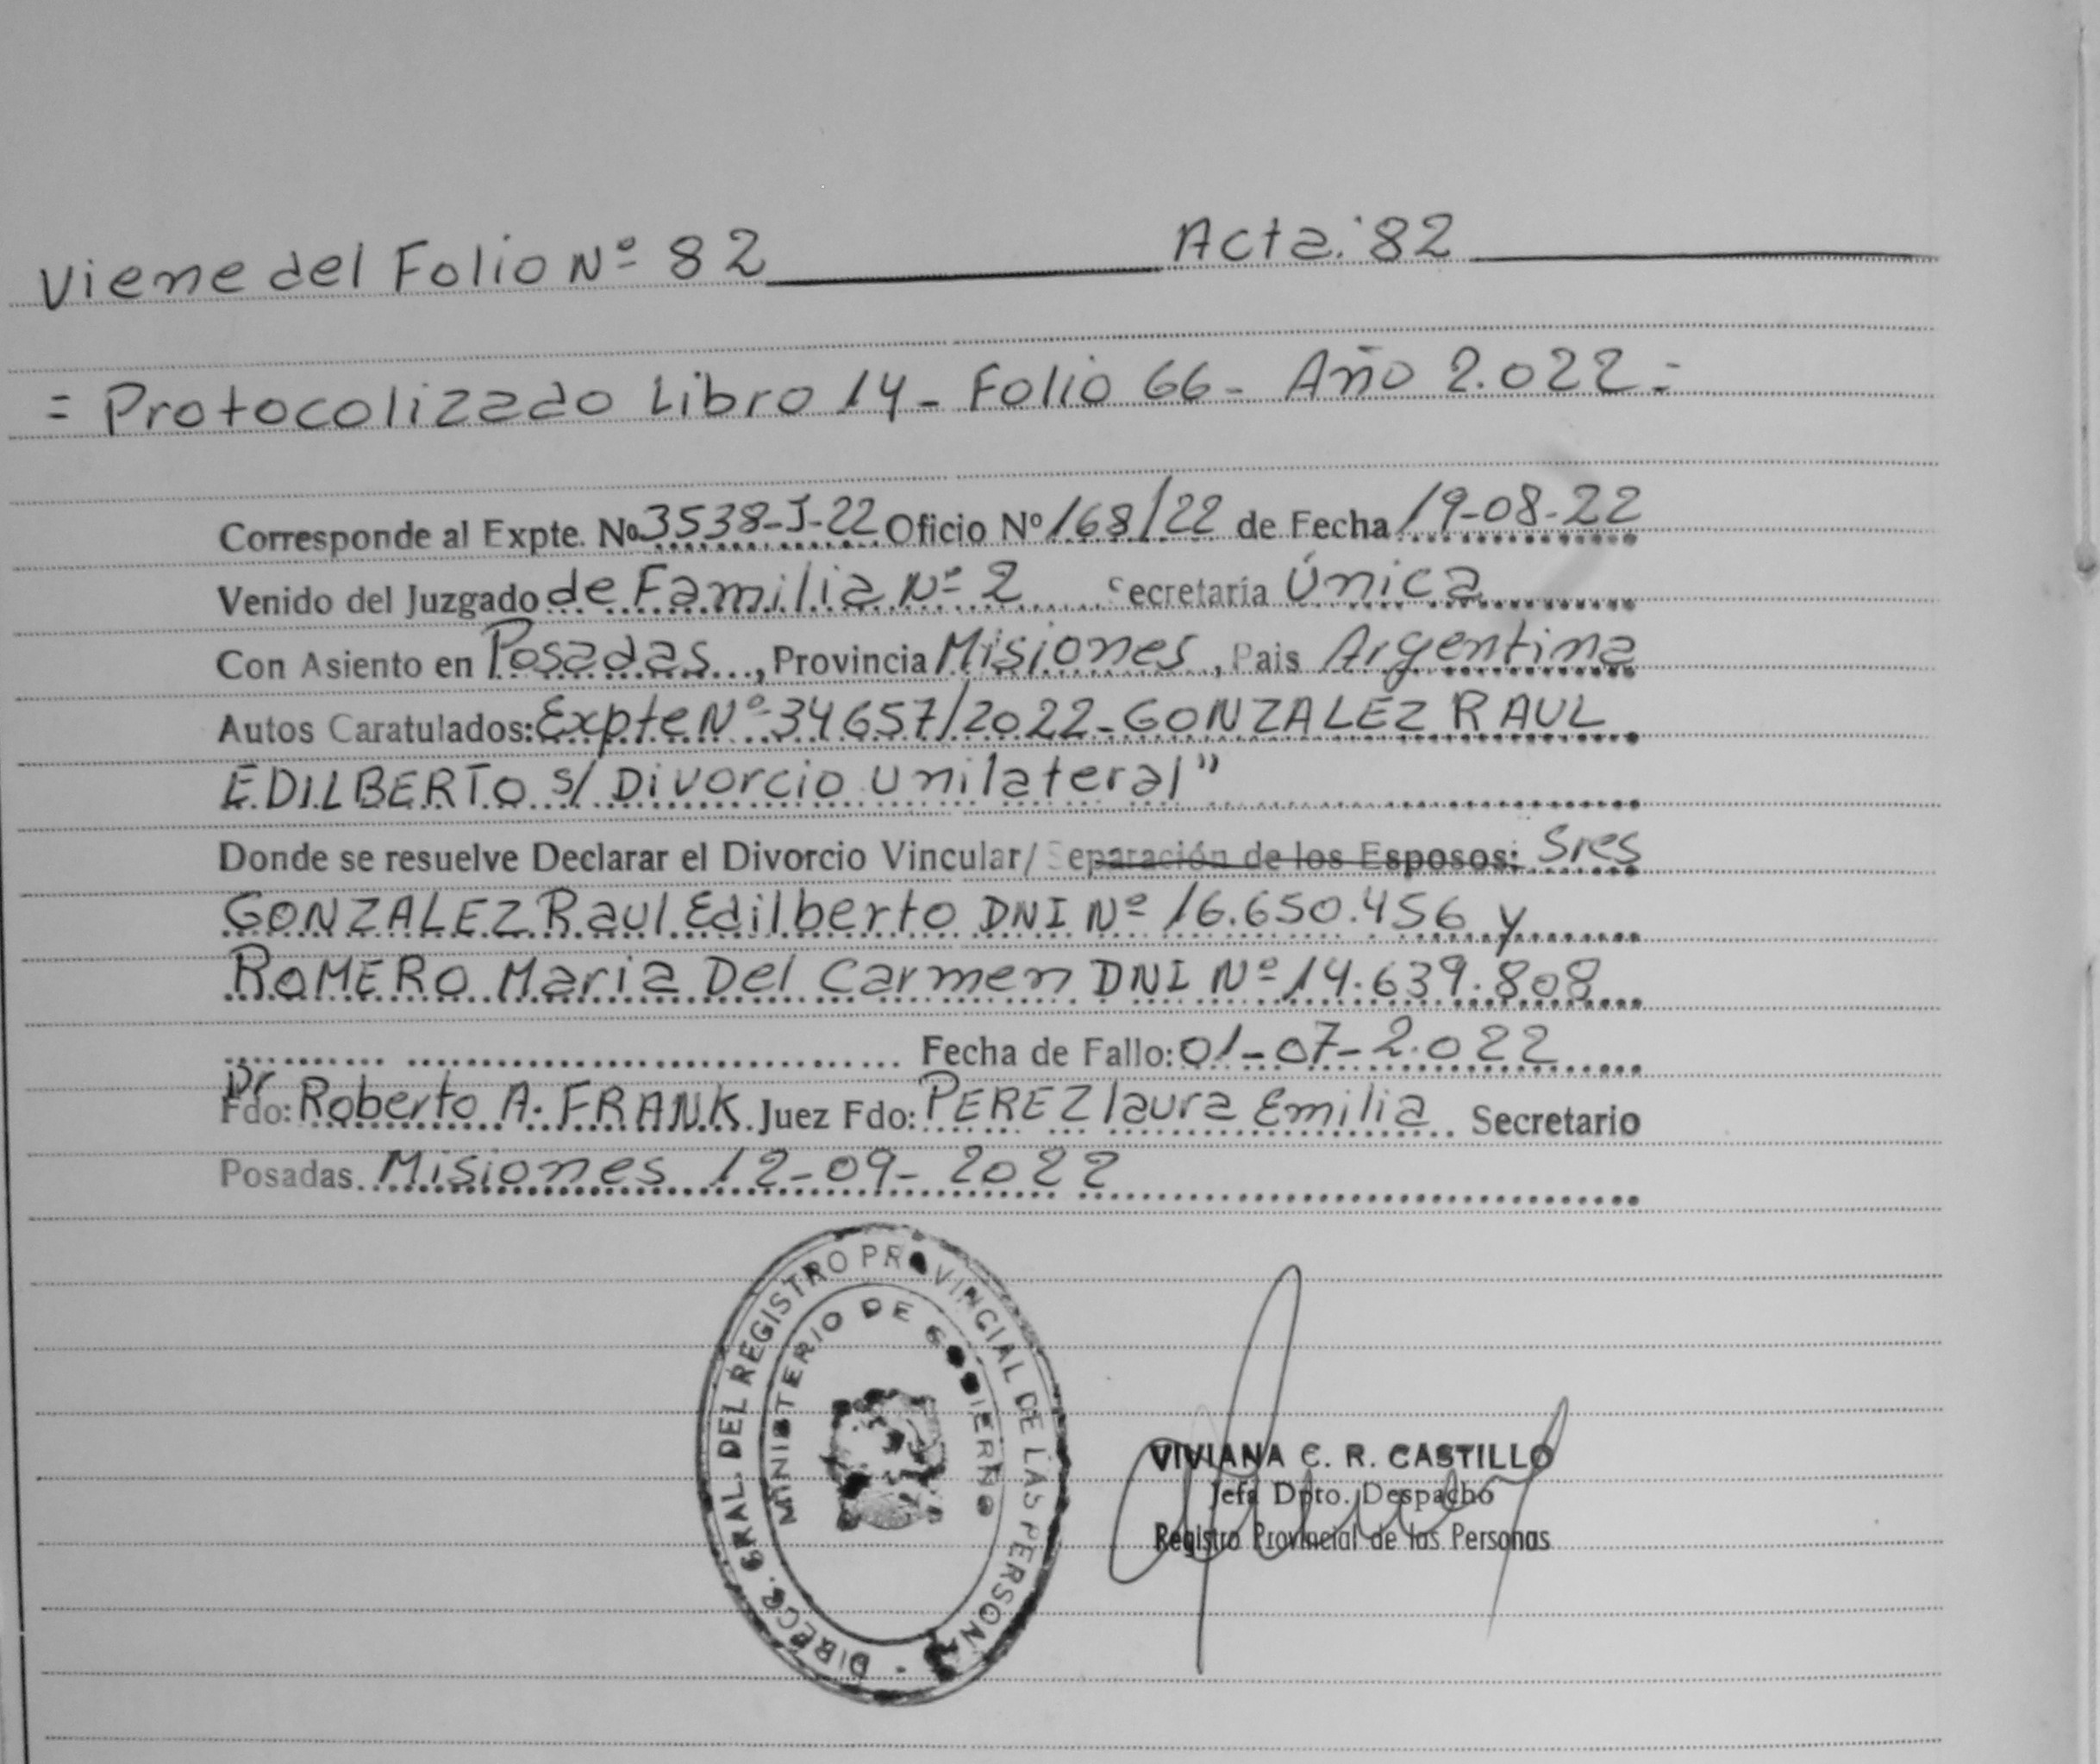 Viene del Folio Nº 82 Acta: 82
= Protocolizado Libro 14 - Folio 66 - Año 2.022 =
Corresponde al Expte. Nº 3538-J-22 Oficio Nº 168/22 de Fecha 19-08-22
Venido del Juzgado de Familia Nº 2 Secretaría Única
Con Asiento en Posadas, Provincia Misiones, Pais Argentina
Autos Caratulados: Expte Nº 34657/2022 - GONZALEZ RAUL
EDILBERTO s/ Divorcio Unilateral"
Donde se resuelve Declarar el Divorcio Vincular/ Separación de los Esposos: Sres
GONZALEZ Raul Edilberto DNI Nº 16.650.456 y
ROMERO Maria Del Carmen DNI Nº 14.639.808
Fecha de Fallo: 01-07-2.022
Fdo: Dr Roberto A. FRANK Juez Fdo: PEREZ laura Emilia Secretario
Posadas. Misiones 12-09-2022
DIRECC. GRAL. DEL REGISTRO PROVINCIAL DE LAS PERSONAS -
MINISTERIO DE GOBIERNO
VIVIANA C. R. CASTILLO
Jefa Dpto. Despacho
Registro Provincial de las Personas